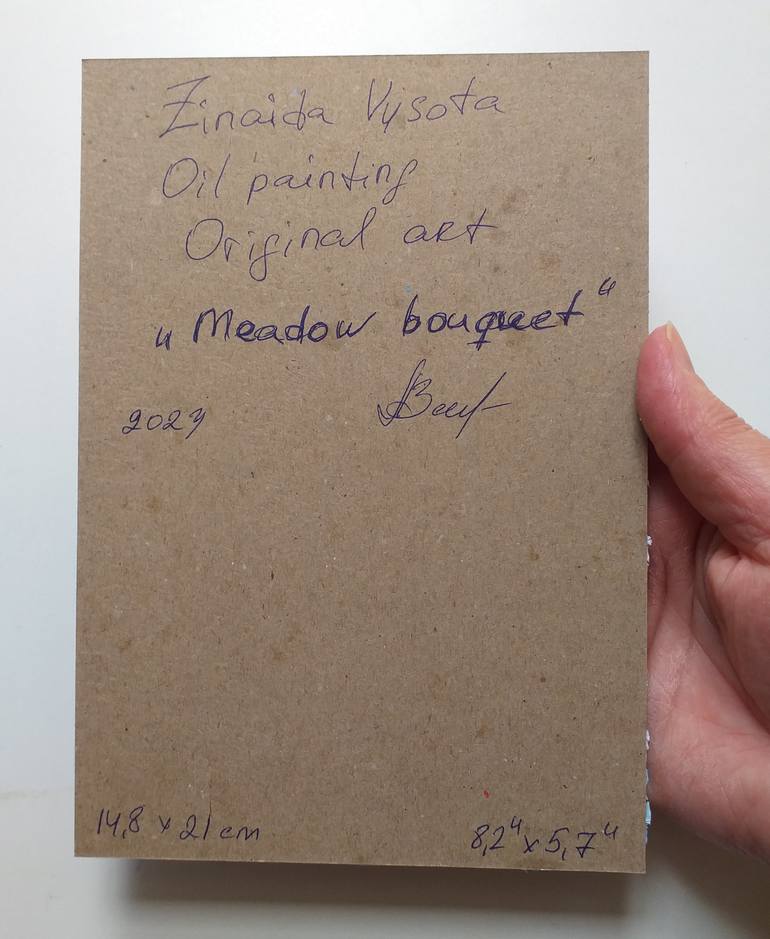 Zinaida Vysota
Oil painting
Original art
„Meadow bouquet“
2024
14,8 x 21 cm
8,2" x 5,7"